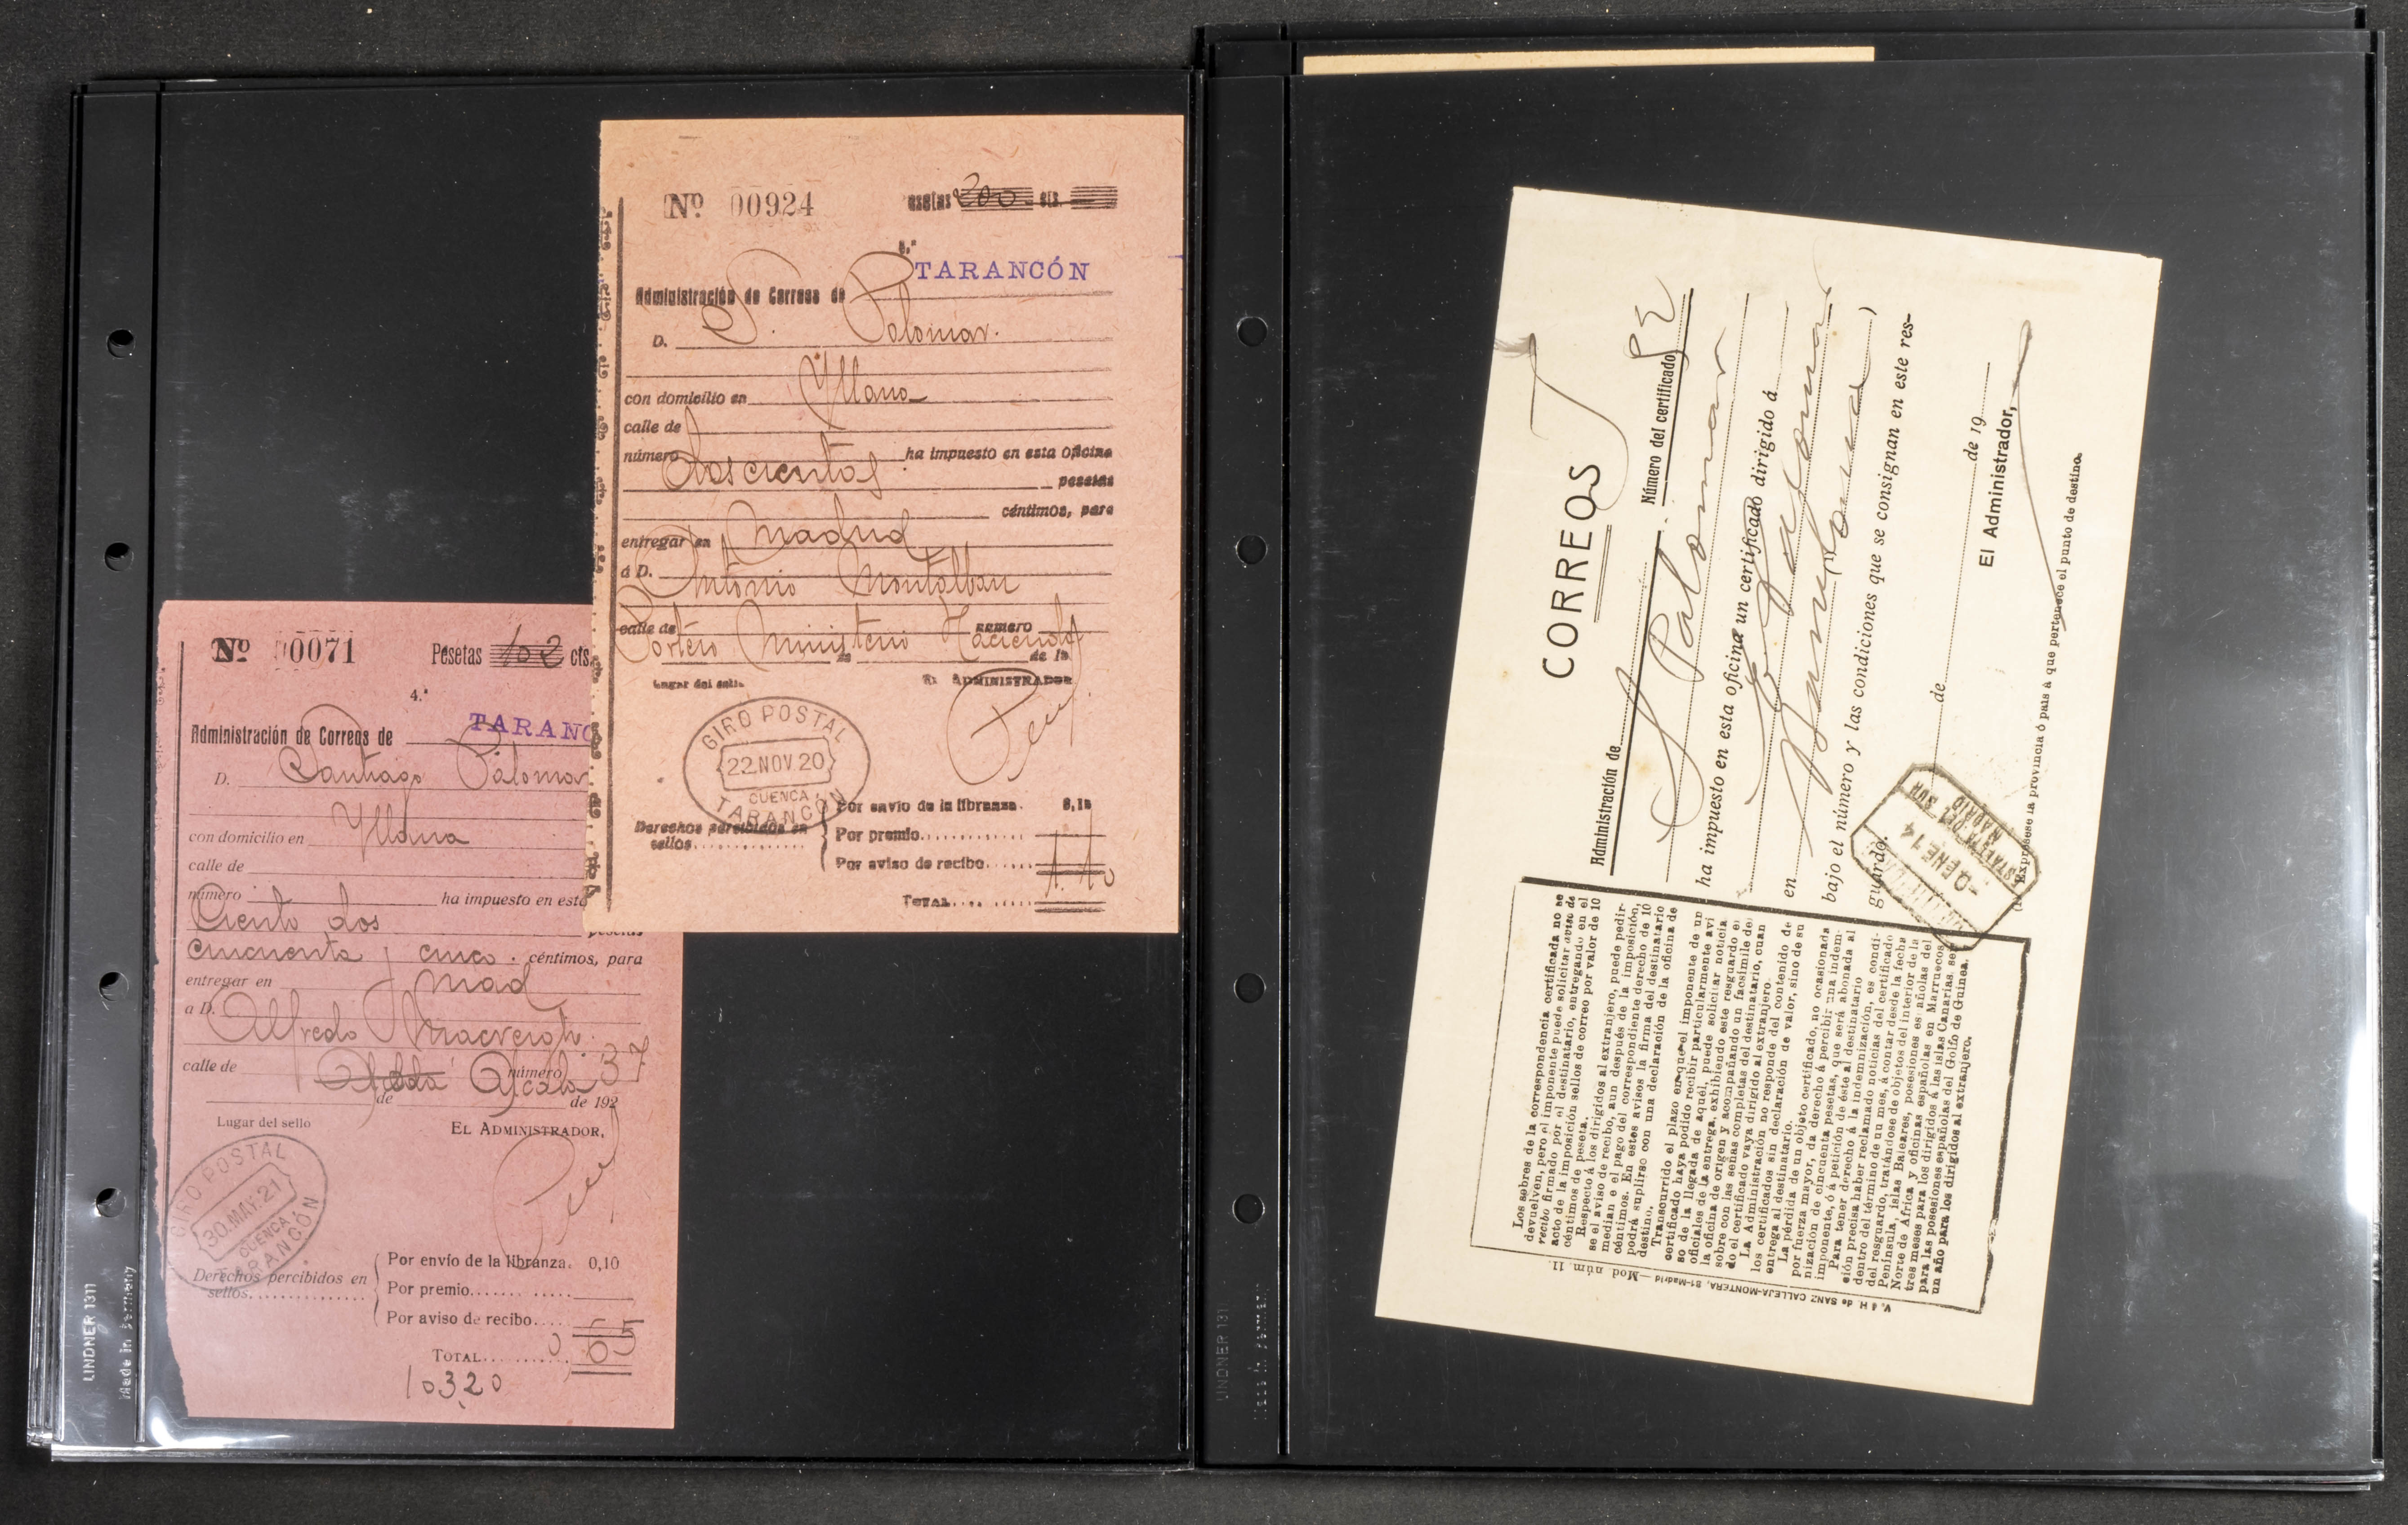 Nº 00924 pesetas 200 cts.
TARANCÓN
Administración de Correos de
D. S. Palomar.
con domicilio en Yllana
calle de
número ha impuesto en esta oficina
doscientas pesetas
céntimos, para
entregar en Madrid
á D. Antonio Montalban
calle de número
Portero Ministerio Hacienda
de de 19
Lugar del sello El ADMINISTRADOR
GIRO POSTAL
22.NOV.20
CUENCA
TARANCÓN
Derechos percibidos en sellos
Por envio de la libranza. 0,10
Por premio
Por aviso de recibo
TOTAL 1.10
Nº 00071 Pesetas 102 cts.
4.ª
TARANC
Administración de Correos de
D. Santiago Palomar
con domicilio en Yllana
calle de
número ha impuesto en esta
Ciento dos pesetas
cincuenta y cinco. céntimos, para
entregar en Mad
a D. Alfredo
calle de Alcala número 37
de de 192
Lugar del sello EL ADMINISTRADOR,
GIRO POSTAL
30.MAY.21
CUENCA
TARANCÓN
Derechos percibidos en sellos
Por envío de la libranza. 0,10
Por premio
Por aviso de recibo
TOTAL 0,65
103,20
LINDNER 1311
Made in Germany
CORREOS
Administración de Número del certificado
S Palomar
ha impuesto en esta oficina un certificado dirigido á
en
bajo el número y las condiciones que se consignan en este res-
guardo.
de de 19
El Administrador,
(1) Exprésese la provincia ó país á que pertenece el punto de destino.
ENE 14
ESTAFETA DEL SUR
MADRID
Los sobres de la correspondencia certificada no se
devuelven, pero el imponente puede solicitar aviso de
recibo firmado por el destinatario, entregando en el
acto de la imposición sellos de correo por valor de 10
céntimos de peseta.
Respecto á los dirigidos al extranjero, puede pedir-
se el aviso de recibo, aun después de la imposición,
median e el pago del correspondiente derecho de 10
céntimos. En estos avisos la firma del destinatario
podrá suplirse con una declaración de la oficina de
destino.
Transcurrido el plazo en que el imponente de un
certificado haya podido recibir particularmente avi
so de la llegada de aquél, puede solicitar noticia
oficiales de la entrega, exhibiendo este resguardo en
la oficina de origen y acompañando un facsímile de
sobre con las señas completas del destinatario, cuan
do el certificado vaya dirigido al extranjero.
La Administración no responde del contenido de
los certificados sin declaración de valor, sino de su
entrega al destinatario.
La pérdida de un objeto certificado, no ocasionada
por fuerza mayor, da derecho á percibir una indem-
nización de cincuenta pesetas, que será abonada al
imponente, ó á petición de éste al destinatario
Para tener derecho á la indemnización, es condi-
ción precisa haber reclamado noticias del certificado
dentro del término de un mes, á contar desde la fecha
del resguardo, tratándose de objetos del interior de la
Península, islas Baleares, posesiones españolas del
Norte de Africa y oficinas españolas en Marruecos,
tres meses para los dirigidos á las islas Canarias, seis
para las posesiones españolas del Golfo de Guinea,
un año para los dirigidos al extranjero.
V. é H. de SANZ CALLEJA-MONTERA, 31-Madrid—Mod. núm. 11.
LINDNER 1311